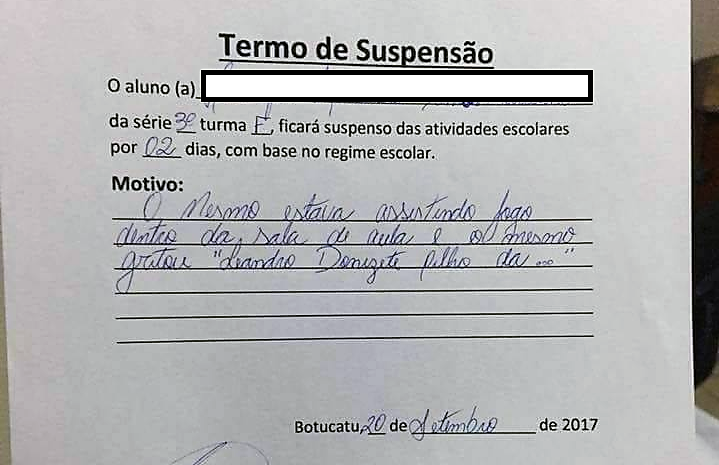 Termo de Suspensão
O aluno (a)
da série 3º turma F, ficará suspenso das atividades escolares
por 02 dias, com base no regime escolar.
Motivo:
O Mesmo estava assistindo jogo
dentro da sala de aula e o mesmo
gritou "Leandro Donizete filho da..."
Botucatu, 20 de Setembro de 2017